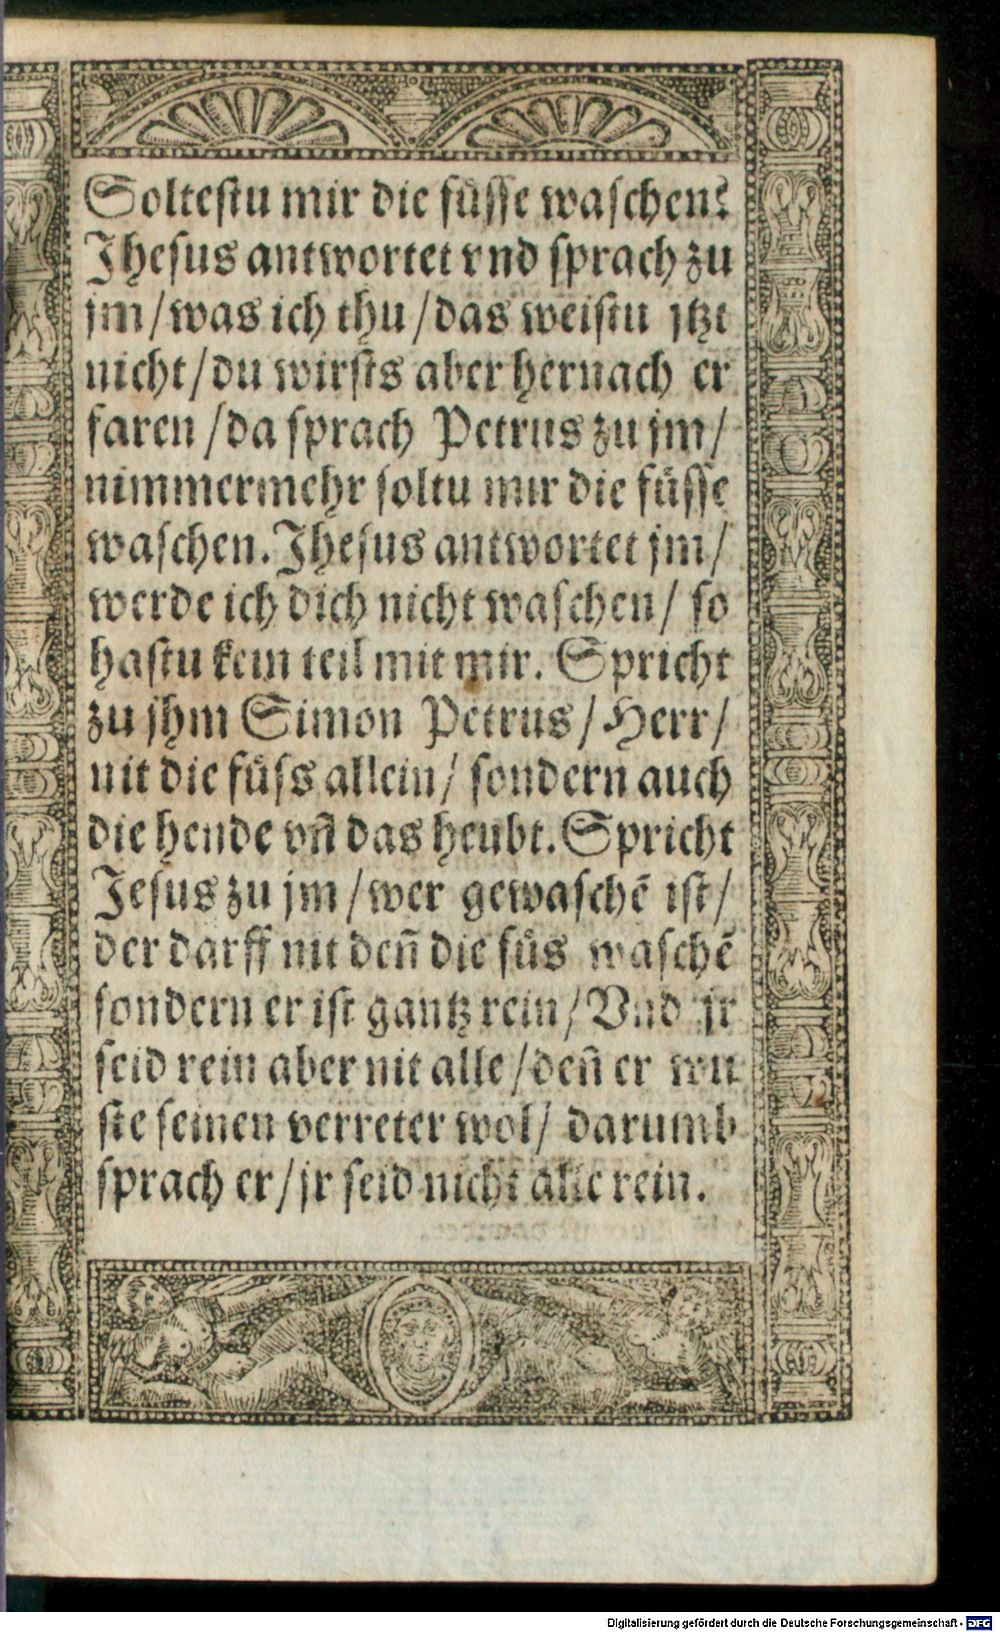 Soltestu mir die füsse waschen?
Jhesus antwortet vnd sprach zu
jm/was ich thu/das weistu jtzt
nicht/du wirsts aber hernach er
faren/da sprach Petrus zu jm/
nimmermehr soltu mir die füsse
waschen. Jhesus antwortet jm/
werde ich dich nicht waschen/ so
hastu kein teil mit mir. Spricht
zu jhm Simon Petrus/Herr/
nit die füss allein/ sondern auch
die hende vñ das heubt. Spricht
Jesus zu jm/wer gewaschē ist/
der darff nit deñ die füs waschē
sondern er ist gantz rein/Vnd jr
seid rein aber nit alle/deñ er wu
ste seinen verreter wol/ darumb
sprach er/jr seid nicht alle rein.
Digitalisierung gefördert durch die Deutsche Forschungsgemeinschaft - DFG